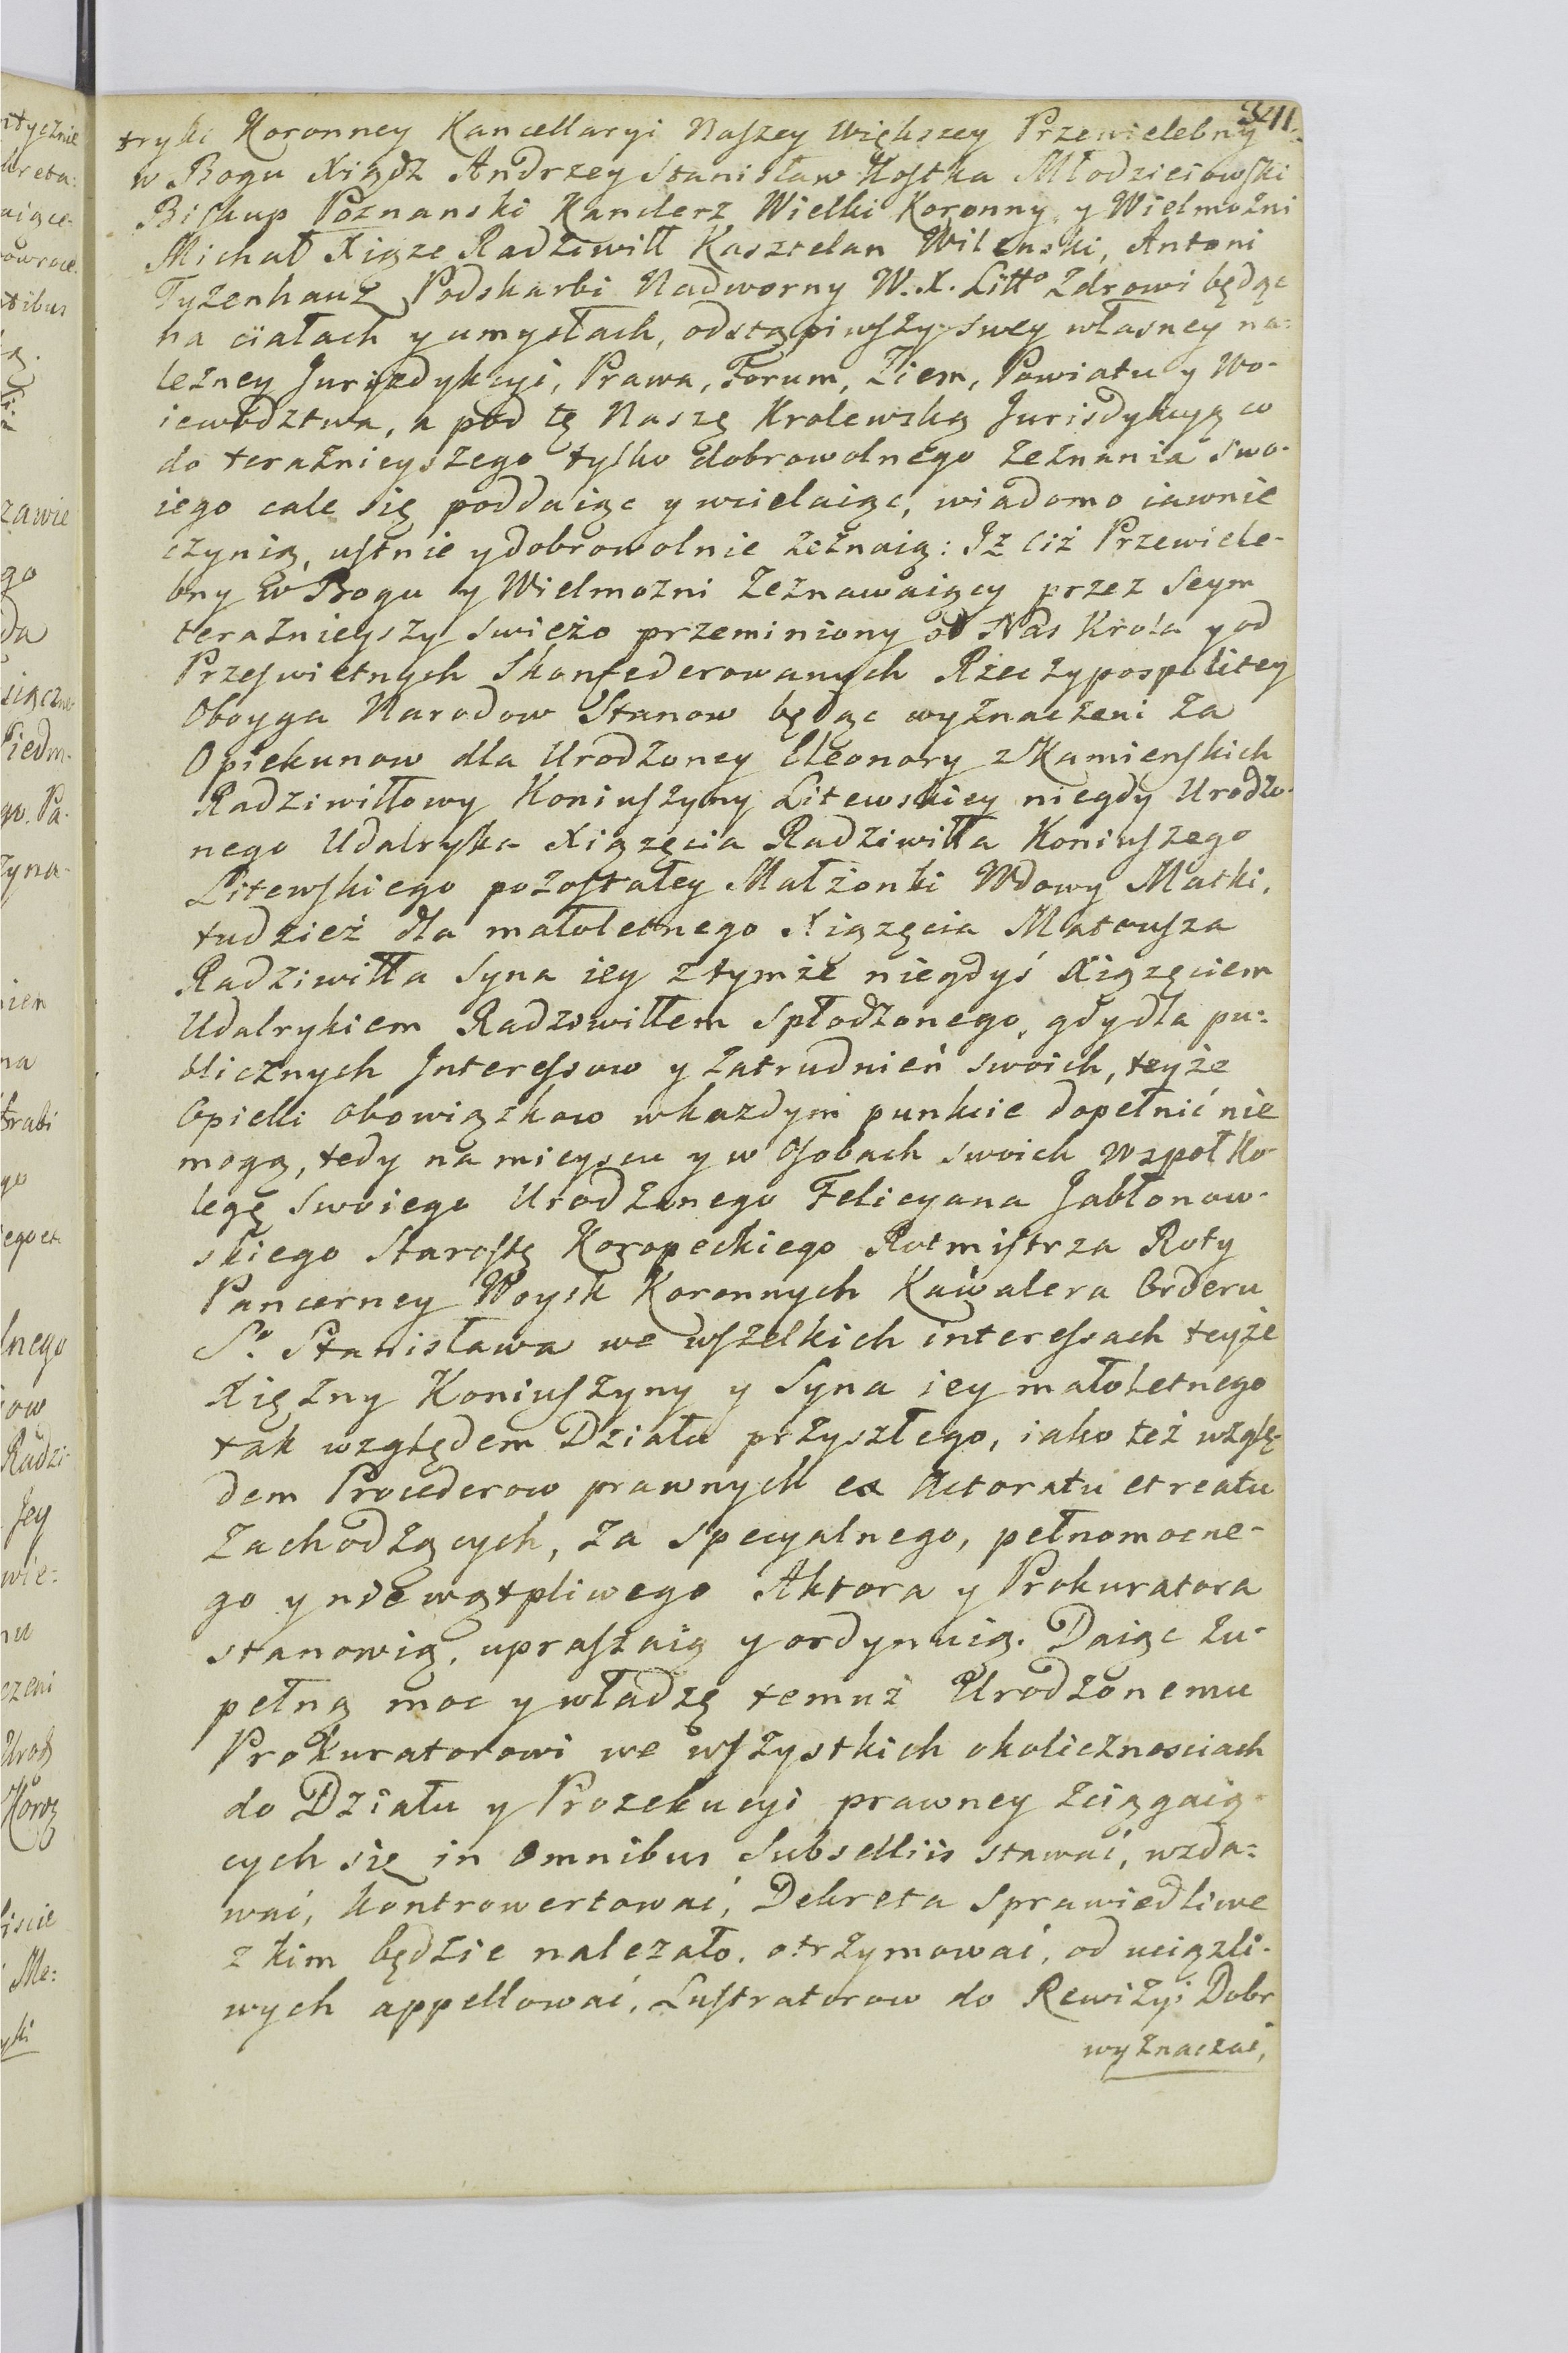 tryki Koronney Kancellaryi Naszey większey Przewielebny
w Bogu Xiądz Andrzey Stanisław Kostka Młodzieiowski
Biskup Poznanski Kanclerz Wielki Koronny y Wielmożni
Michał Xiąze Radziwiłł Kasztelan Wilenski, Antoni
Tyzenhauz Podskarbi Nadworny W. X. Litto Zdrowi będąc
na ciałach y umysłach, odstąpiwszy swey własney na-
leżney Jurizdykcyi, Prawa, Forum, Ziem, Powiatu y Wo-
iewództwa, a pod tę Naszę Krolewską Jurisdykcyą co
do teraźnieyszego tylko dobrowolnego zeznania swo-
iego cale się poddaiąc y wcielaiąc, wiadomo iawnie
czynią, ustnie y dobrowolnie zeznaią: Iż ciż Przewiele-
bny w Bogu y Wielmożni Zeznawaiący przez Seym
teraźnieyszy swieżo przeminiony od Nas Krola y od
Przeswietnych Skonfederowanych Rzeczypospolitey
Oboyga Narodow Stanow będąc wyznaczeni za
Opiekunow dla Urodzoney Eleonory z Kamienskich
Radziwiłłowy Koniuszyny Litewskiey niegdy Urodzo-
nego Udalryka Xiązęcia Radziwiłła Koniuszego
Litewskiego pozostałey Małżonki Wdowy Matki,
tudzież dla małoletnego Xiązęcia Mateusza
Radziwiłła Syna iey z tymże niegdyś Xiązęciem
Udalrykiem Radziwiłłem Spłodzonego, gdy dla pu-
blicznych Interessow y zatrudnień swoich, teyże
Opieki obowiązkow w każdym punkcie dopełnić nie
mogą, tedy na mieyscu y w osobach swoich wspoł Ko-
legę swoiego Urodzonego Felicyana Jabłonow-
skiego Starostę Koropeckiego Rotmistrza Roty
Pancerney Woysk Koronnych Kawalera Orderu
So. Stanisława we wszelkich interessach teyże
Xiężny Koniuszyny y Syna iey małoletnego
tak względem Działu przyszłego, iako też wzglę-
dem Procederow prawnych ex Actoratu et reatu
Zachodzących, za specyalnego, pełnomocne-
go y niewątpliwego Aktora y Prokuratora
stanowią, upraszaią y ordynuią. Daiąc zu-
pełną moc y władzę temuż Urodzonemu
Prokuratorowi we wszystkich okolicznosciach
do Działu y Prozekucyi prawney sciągaią-
cych się in omnibus Subselliis stawać, wzda-
wać, kontrowertować, Dekreta sprawiedliwe
z kim będzie nalezało, otrzymować, od uciązli-
wych appellować, Lustratorow do Rewizyi Dobr
wyznaczać,